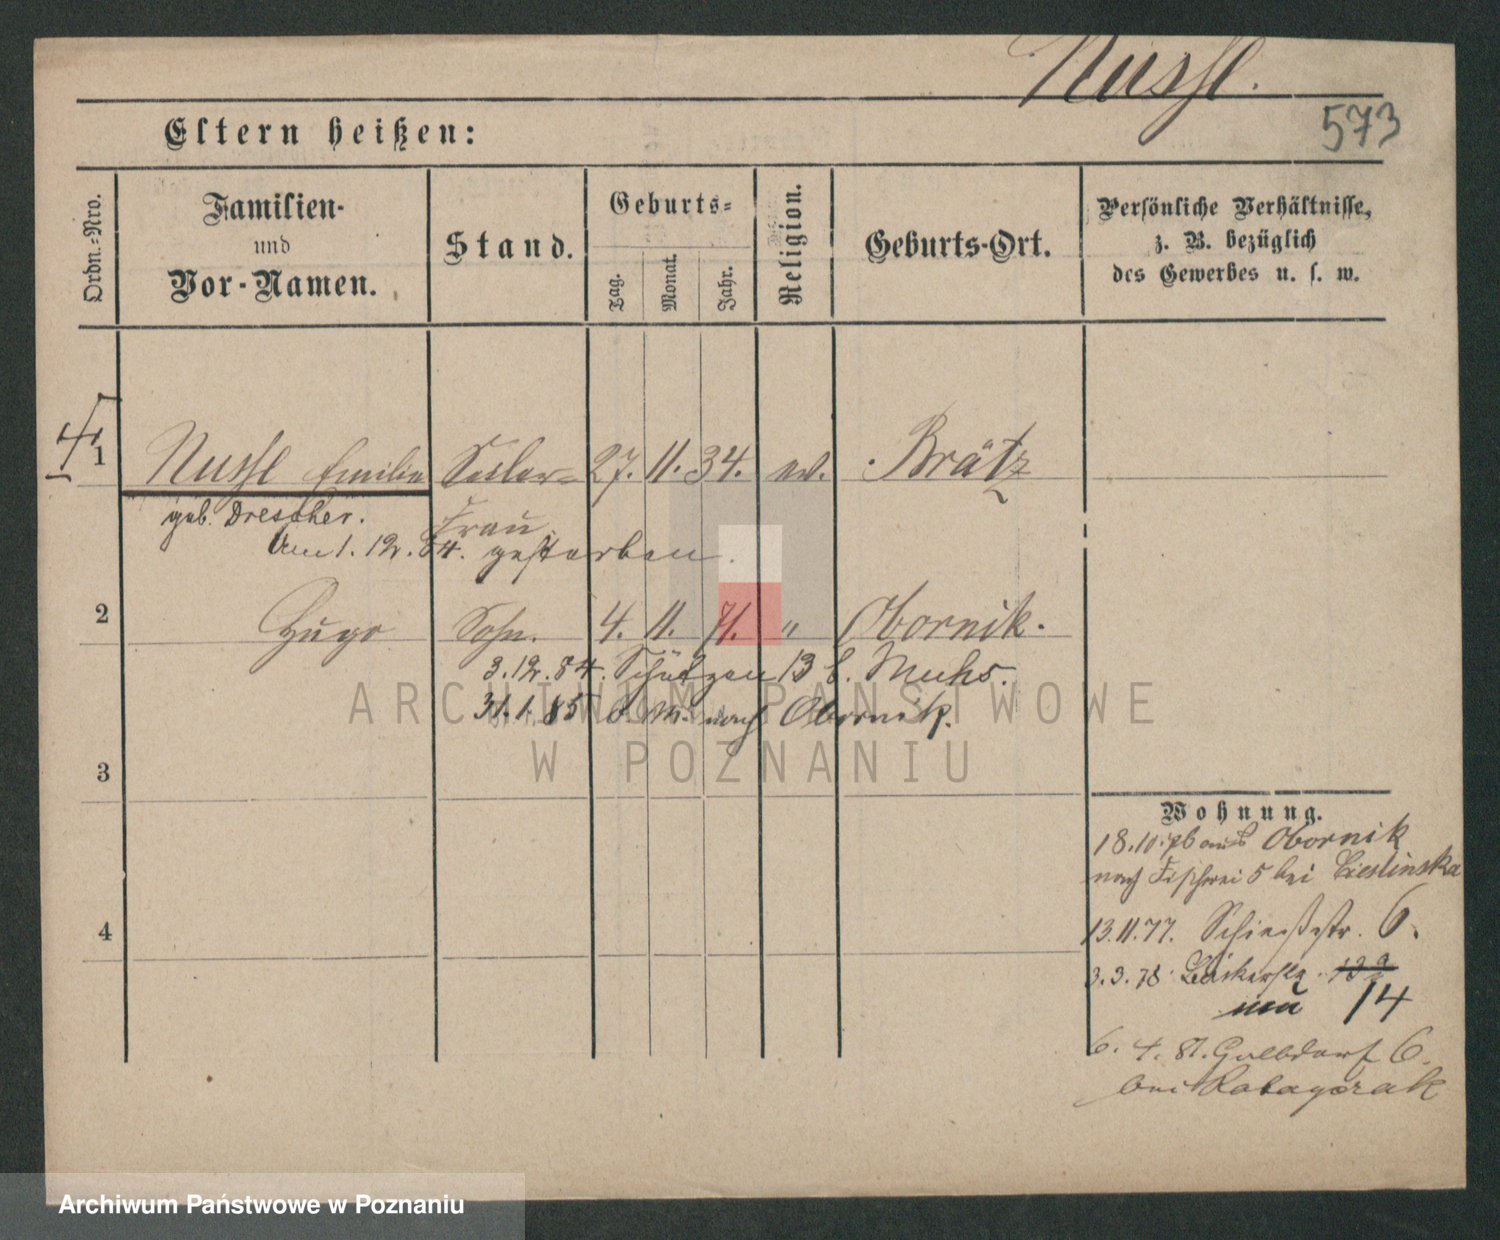 Nussl.
573
Eltern heißen:
Ordn.-Nro.
Familien-
und
Vor-Namen.
Stand.
Geburts-
Tag.
Monat.
Jahr.
Religion.
Geburts-Ort.
Persönliche Verhältnisse,
z. B. bezüglich
des Gewerbes u. s. w.
1 Nussl Emilie Seiler- 27. 11. 34. ev. Brätz
geb. Drescher. Frau.
Am 1. 12. 84. gestorben.
2 Hugo Sohn. 4. 11. 71. " Obornik.
3. 12. 84. Schützen 13 b. Muhs.
31. 1. 85 nach Obornik.
3
4
Wohnung.
18.10.76 aus Obornik
nach Fischerei 5 bei Cieslinska
13.11.77. Schießstr. 6.
3.3.78. Bäckerstr.
14
6. 4. 81. 6.
bei Ratagczak
ARCHIWUM PAŃSTWOWE
W POZNANIU
Archiwum Państwowe w Poznaniu